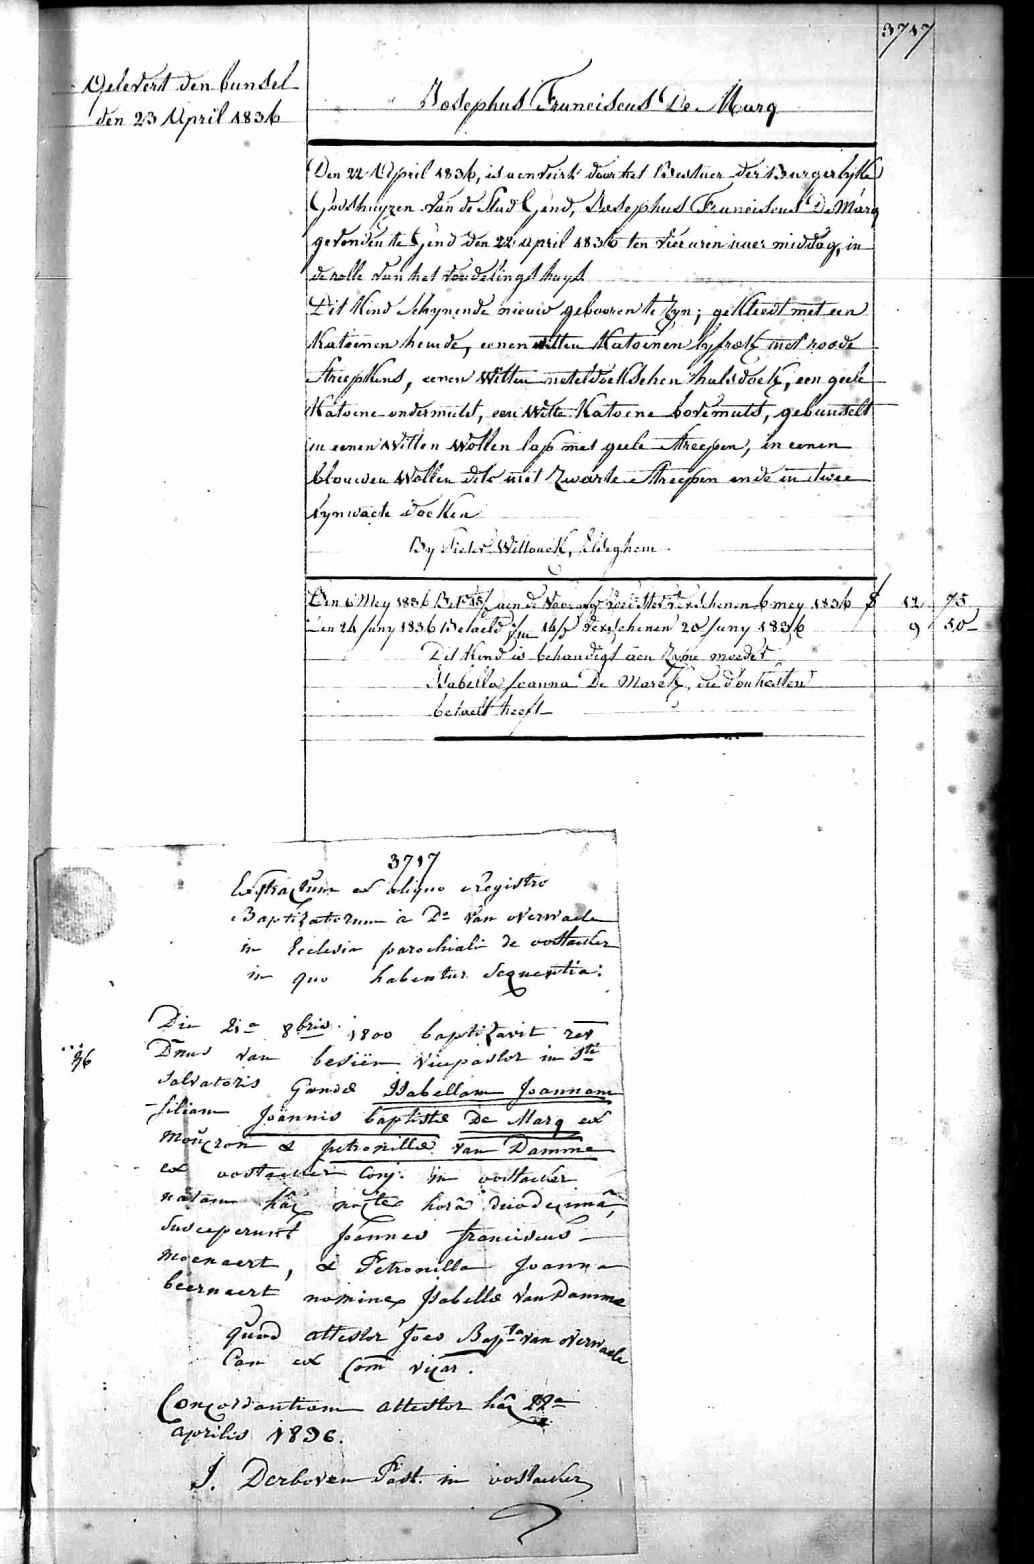 3717
Gelevert den bunsel
den 23 April 1836
Josephus Franciscus De Marq
Den 22 April 1836, is aenveirt door het Bestuer der Burgerlyke
Godshuyzen van de Stad Gend, Josephus Franciscus De Marq
gevonden te Gend den 22 april 1836 ten vier uren naer middag, in
de rolle van het vondelingshuys
Dit Kind schynende nieuw gebooren te zyn; gekleedt met een
Katoenen hemde, eenen witten Katoenen lyfrok met roode
streepkens, eenen Witten neteldoekschen halsdoek, een geele
Katoene ondermuts, een Witte Katoene bovemuts, gebunselt
in eenen Witten Wollen lap met geele streepen, in eenen
blauwen Wollen dito met Zwarte streepen ende in twee
lynwaete doeken
By Pieter Willouck, Eldeghem
Den 6 Mey 1836 aen de verschenen 6 mey 1836 12 75
Den 24 Juny 1836 Betaeld verschenen 20 Juny 1836 9 50
Dit Kind is behandigt aen zyne moeder
Isabella Joanna De Marck, die d'onkosten
betaelt heeft
3717
Extractum ex aliquo registro
Baptizatorum a Do van overwaele
in Ecclesia parochiali de oostacker
in quo habentur sequentia:
Die 21a 8bris 1800 baptizavit rev
Dnus van besiën vicepastor in Sti
salvatoris Gandæ Isabellam Joannam
filiam Joannis baptistæ De Marq ex
moucron & petronillæ van Damme
ex oostacker conj. in oostacker
natam hâc nocte horâ duodecimâ,
susceperunt Joannes franciscus
moenaert, & Petronilla Joanna
beernaert nomine Isabellæ Van Damme
quod attestor Joes Bapta van overwaele
Can ex Com vicar.
Concordantiam attestor hâc 22a
aprilis 1836.
J. Derboven Past. in oostacker
36